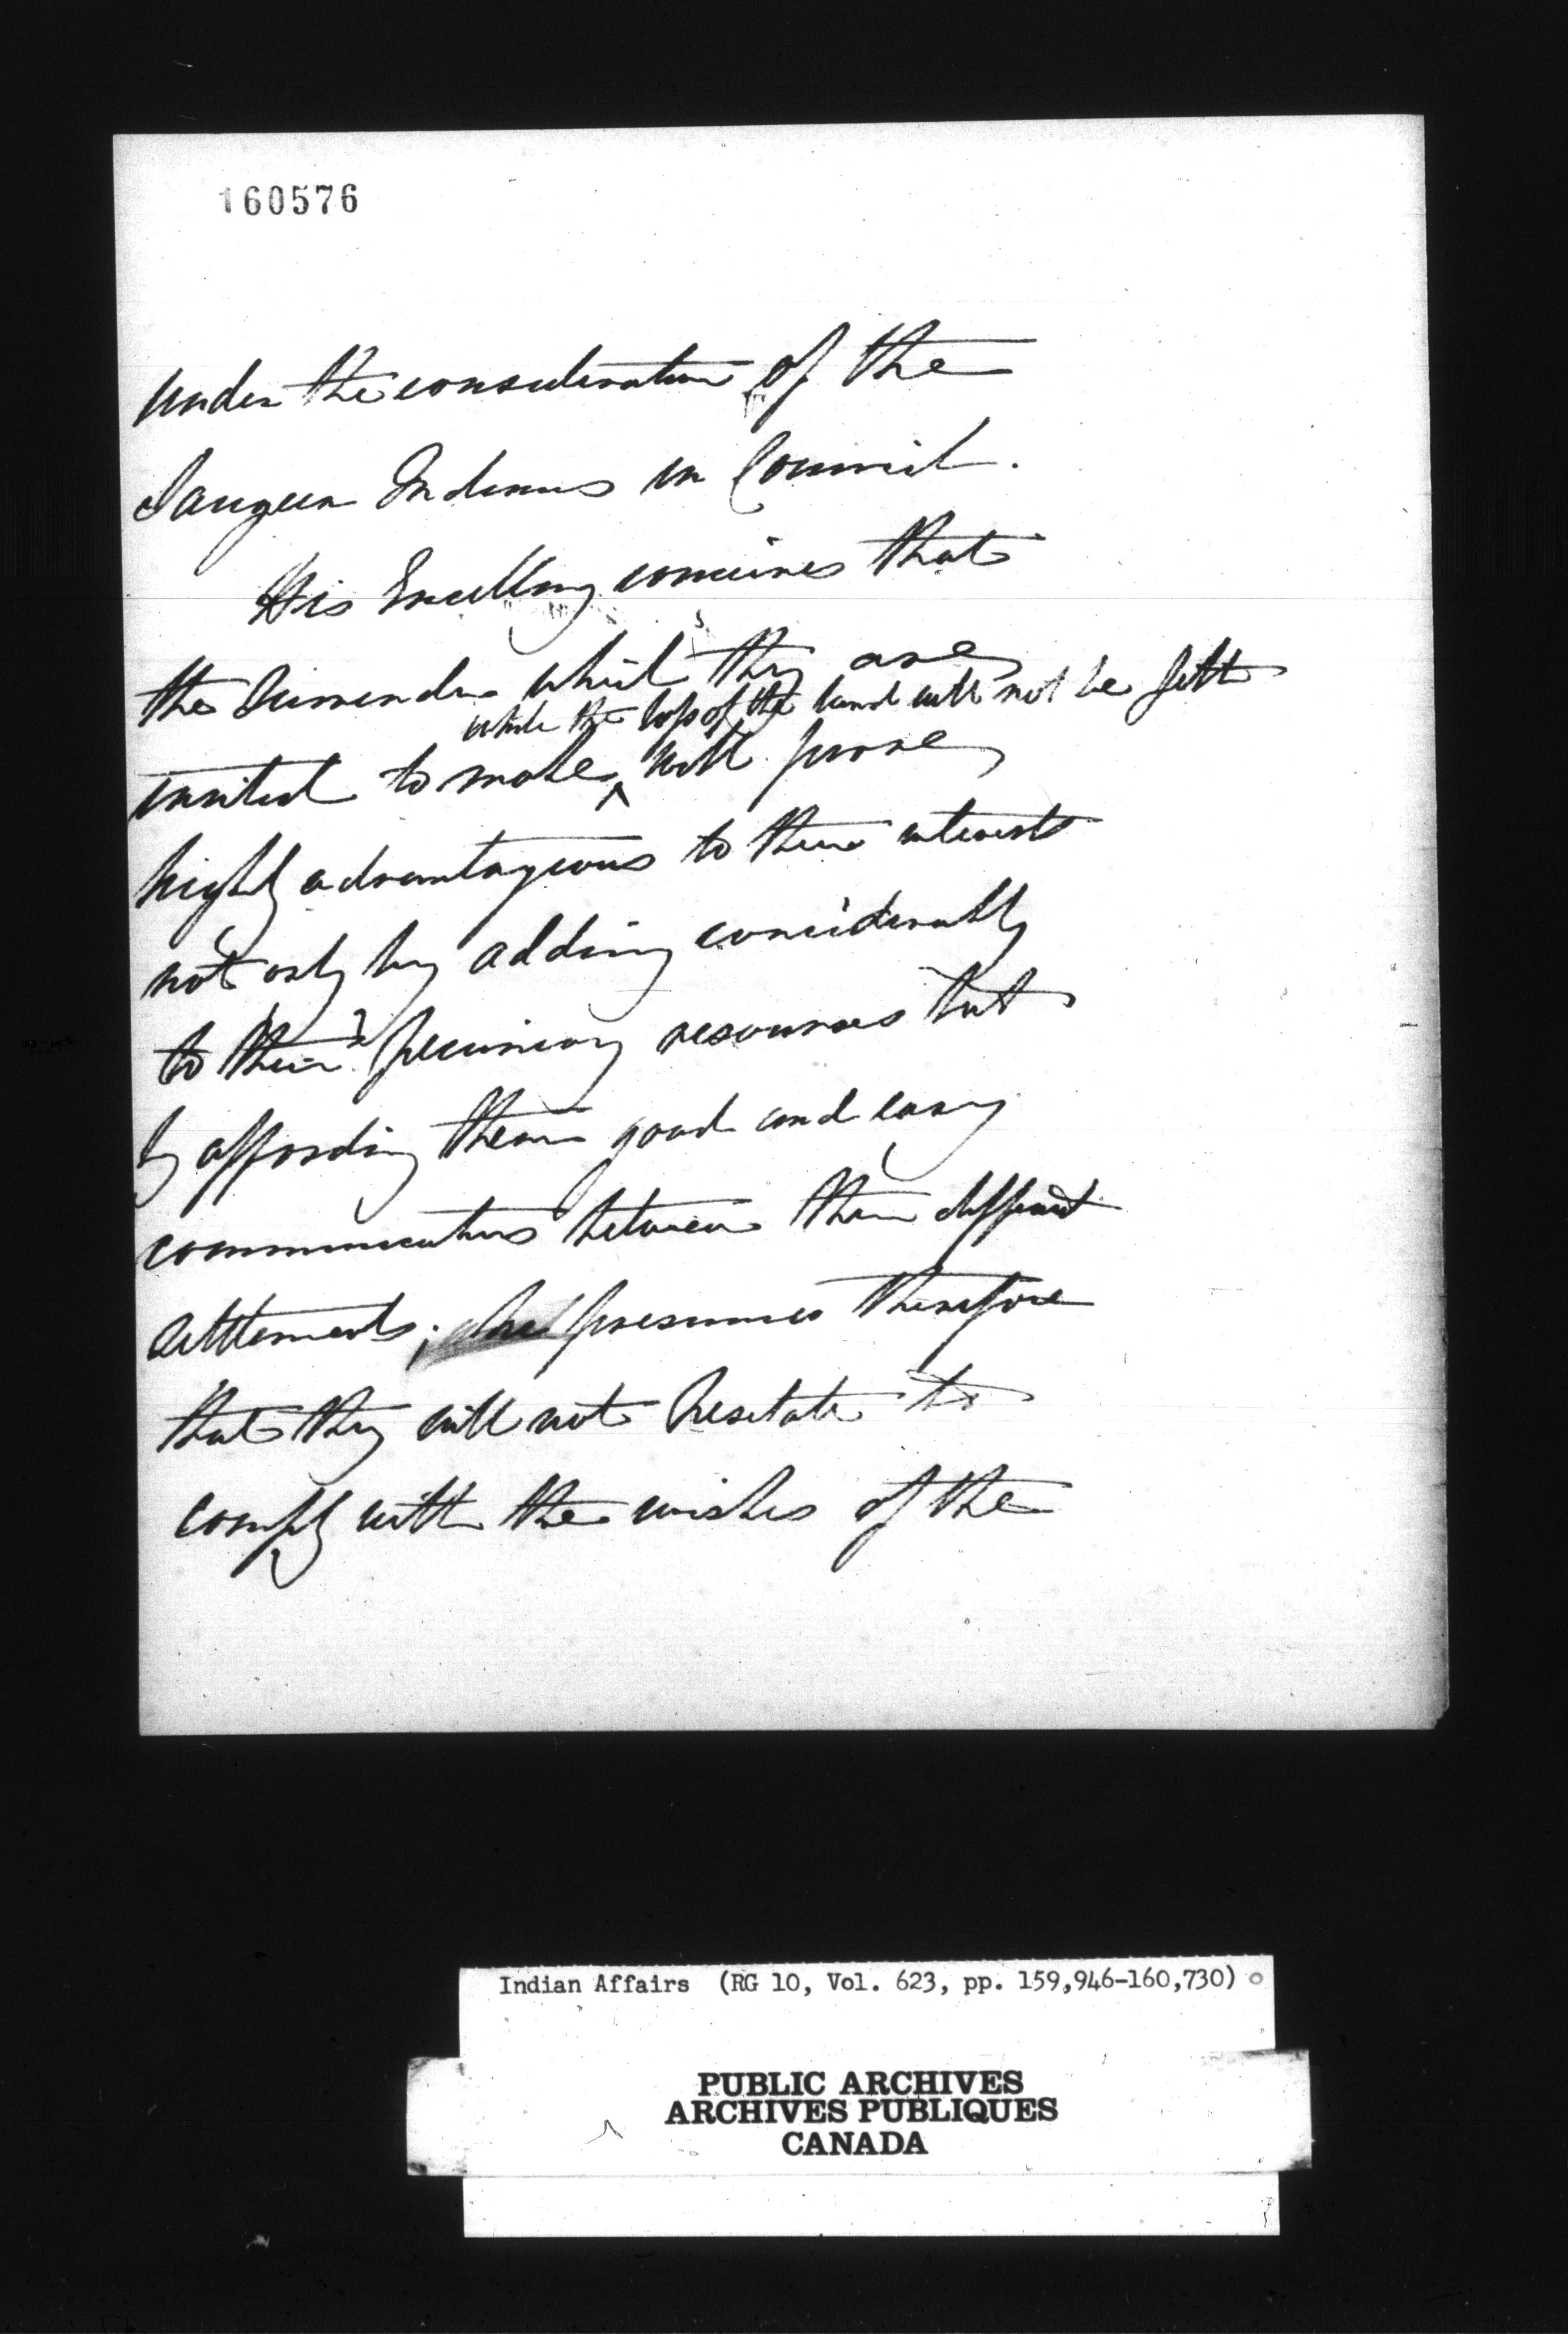 160576
under the consideration of the
Saugeen Indians in Council.
His Excellency conceives that
the surrender which they are
while the loss of the land will not be felt
invited to make ^ will prove
highly advantageous to their interests
not only by adding considerably
to their pecuniary resources but
by affording them good and easy
communications between their different
settlements; he presumes therefore
that they will not hesitate to
comply with the wishes of the
Indian Affairs (RG 10, Vol. 623, pp. 159,946-160,730)
PUBLIC ARCHIVES
ARCHIVES PUBLIQUES
CANADA